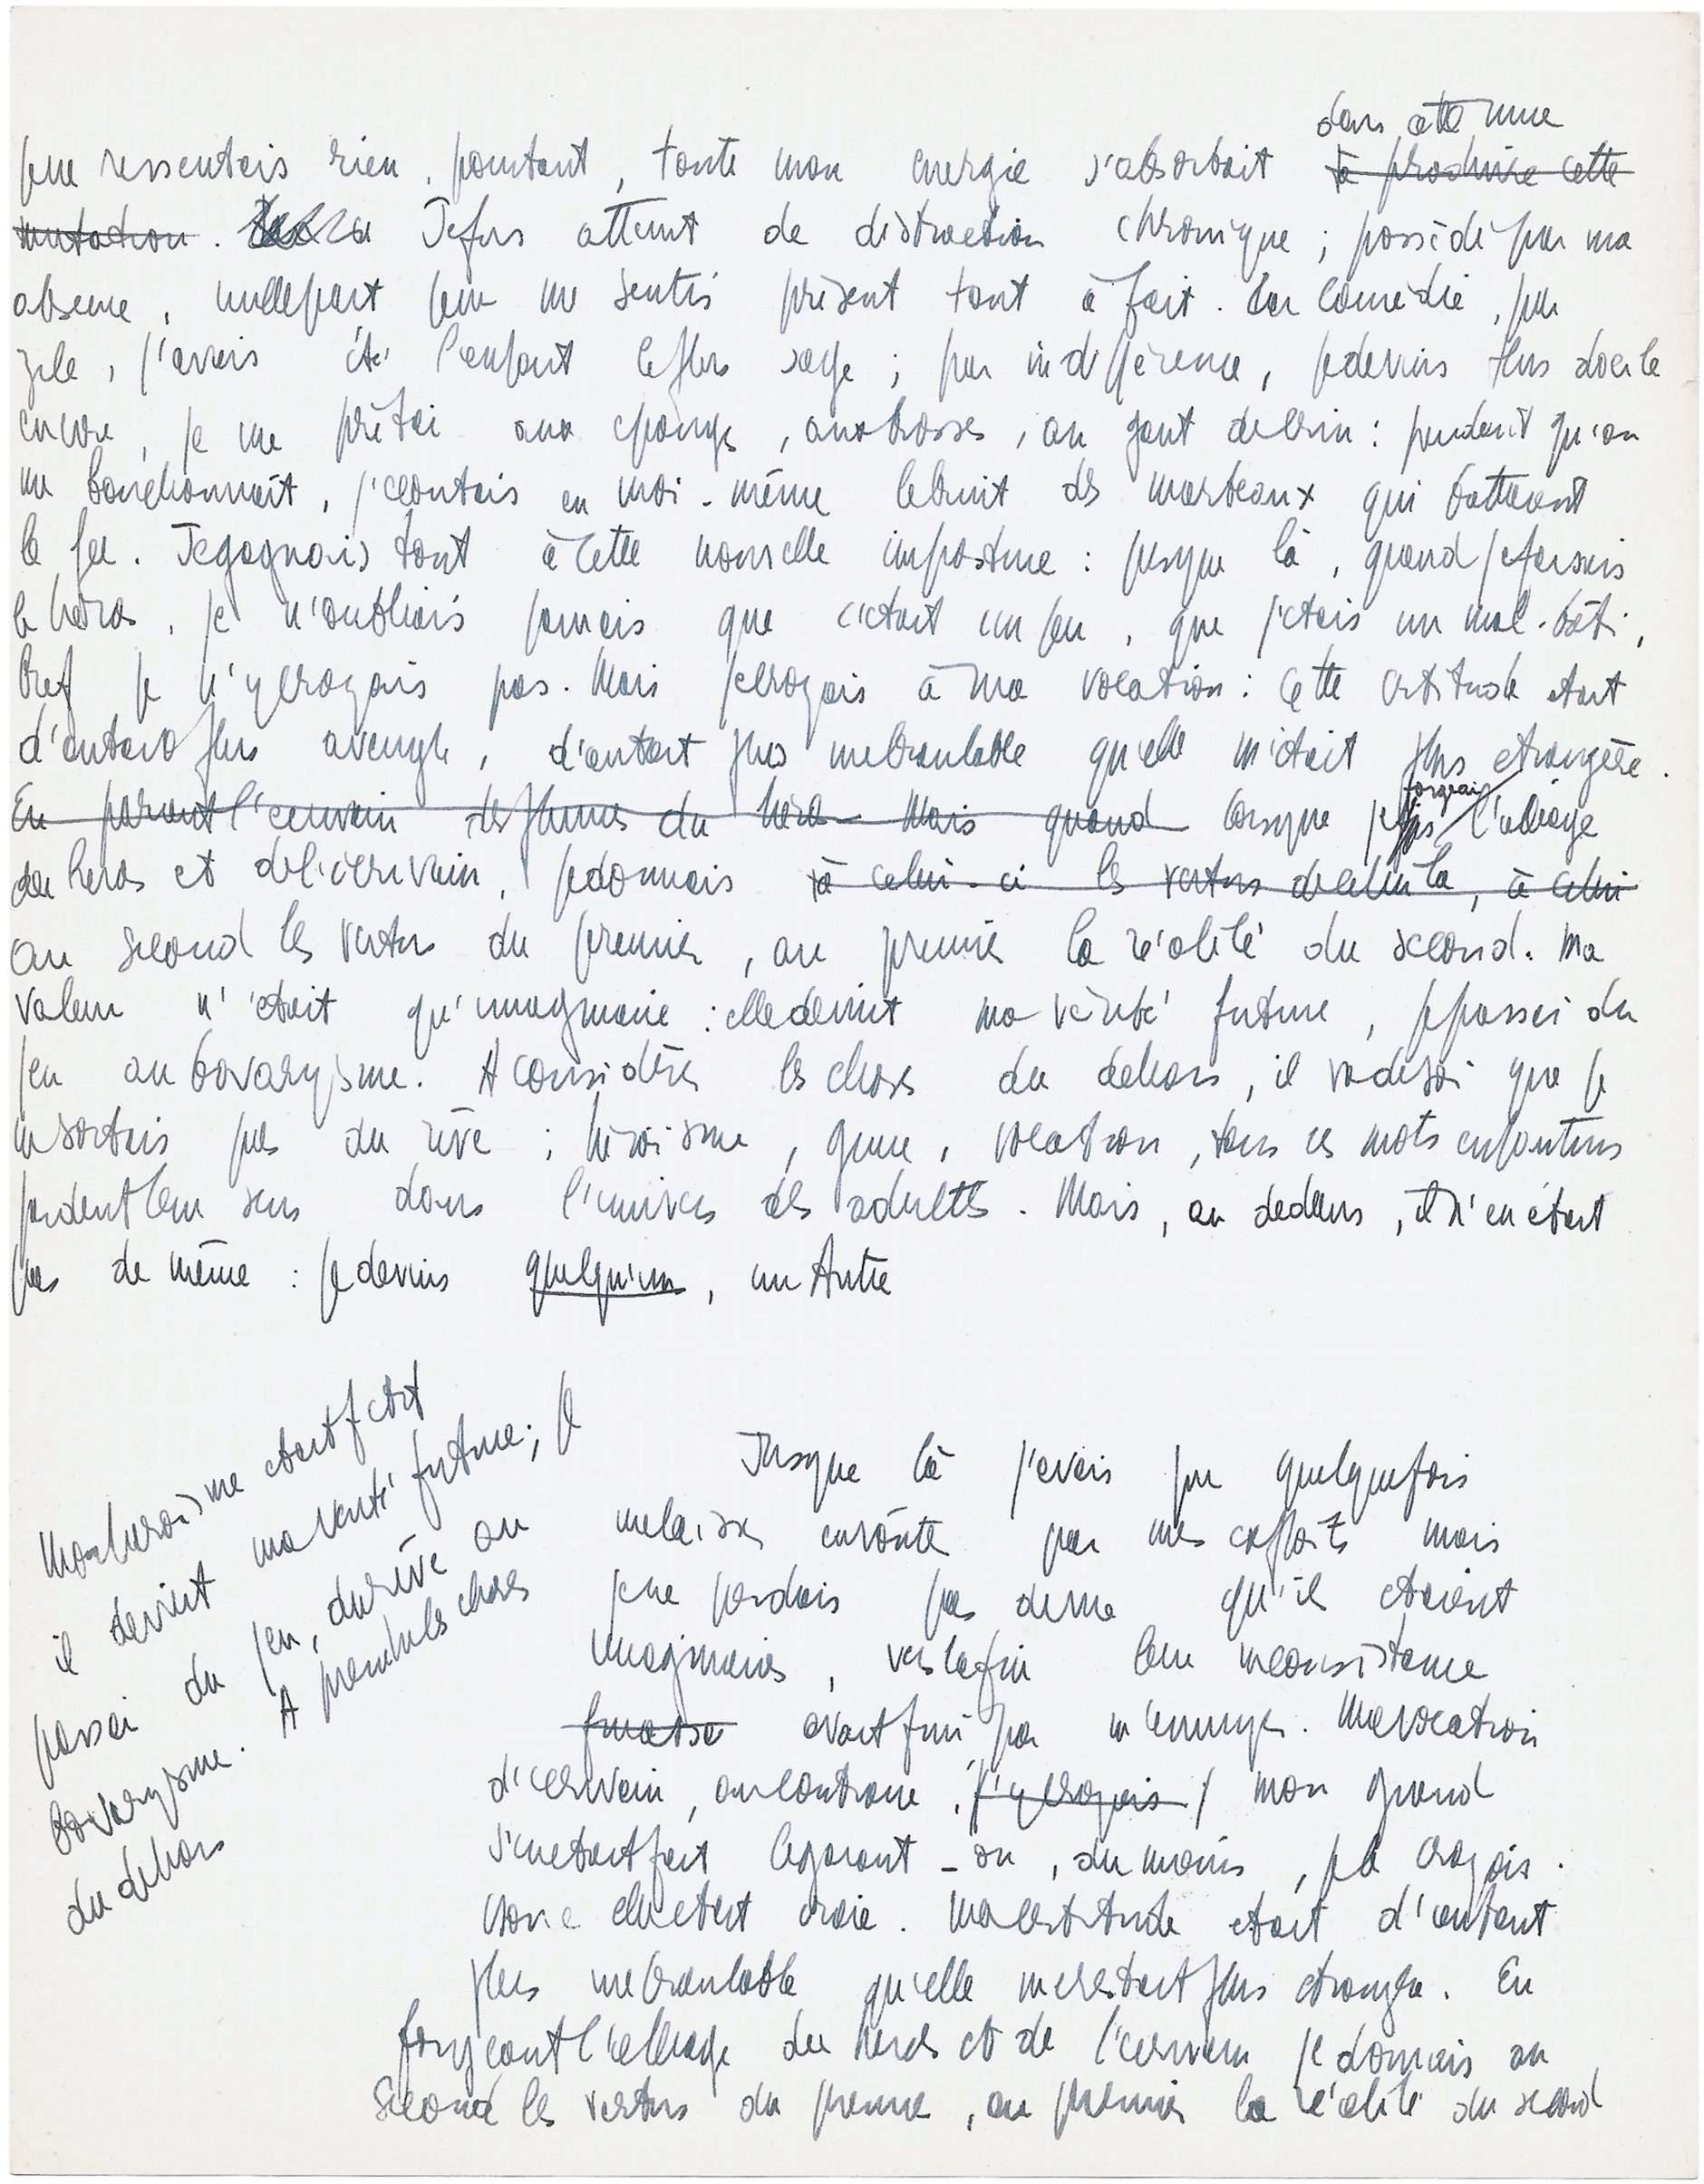 dans cette mue
je ne ressentais rien. pourtant, toute mon energie s'absorbait à produire cette
mutation. Je fus atteint de distraction chronique ; possédé par ma
absence, nulle part je ne me sentis présent tout à fait. Par comédie, par
zèle, j'avais été l'enfant le plus sage ; par indifférence, je devins plus docile
encore, je me prêtai aux éponges, aux brosses, au gant de crin : pendant qu'on
me bouchonnait, j'écoutais en moi-même le bruit des marteaux qui battaient
le fer. Je gagnais tout à cette nouvelle imposture : jusque là, quand je faisais
le héros, je n'oubliais jamais que c'était un jeu, que j'étais un mal-bâti,
bref je n'y croyais pas. Mais je croyais à ma vocation : cette certitude etait
d'autant plus aveugle, d'autant plus inebranlable qu'elle m'était plus etrangère.
forgeais
En parant l'ecrivain des plumes du héros Mais quand lorsque je l'alliage
du heros et de l'écrivain, je donnais à celui-ci les vertus de celui là, à celui
au second les vertus du premier, au premier la réalité du second. Ma
valeur n'etait qu'imaginaire : elle devint ma vérité future, je passai du
jeu au bovarysme. A considérer les choses du dehors, il va de soi que je
ne sortais pas du rêve ; héroïsme, génie, vocation, tous ces mots enfantins
perdent leur sens dans l'univers des adultes. Mais, au dedans, il n'en était
pas de même : je devins quelqu'un, un Autre
Mon heroïsme etait fictif
il devint ma verité future ; je
passai du jeu, du rêve au
bovarysme. A prendre les choses
du dehors
Jusque là j'avais pu quelquefois
me laisser envoûter par mes exploits mais
je ne perdais pas de vue qu'ils etaient
imaginaires, vers la fin leur inconsistance
avait fini par m'ennuyer. Ma vocation
d'ecrivain, au contraire, j'y croyais / mon grand
s'en etait fait le garant - ou, du moins, je le croyais.
Donc elle etait vraie. Ma certitude etait d'autant
plus inebranlable qu'elle me restait plus etrangère. En
forgeant l'alliage du heros et de l'ecrivain je donnais au
second les vertus du premier, au premier la réalité du second